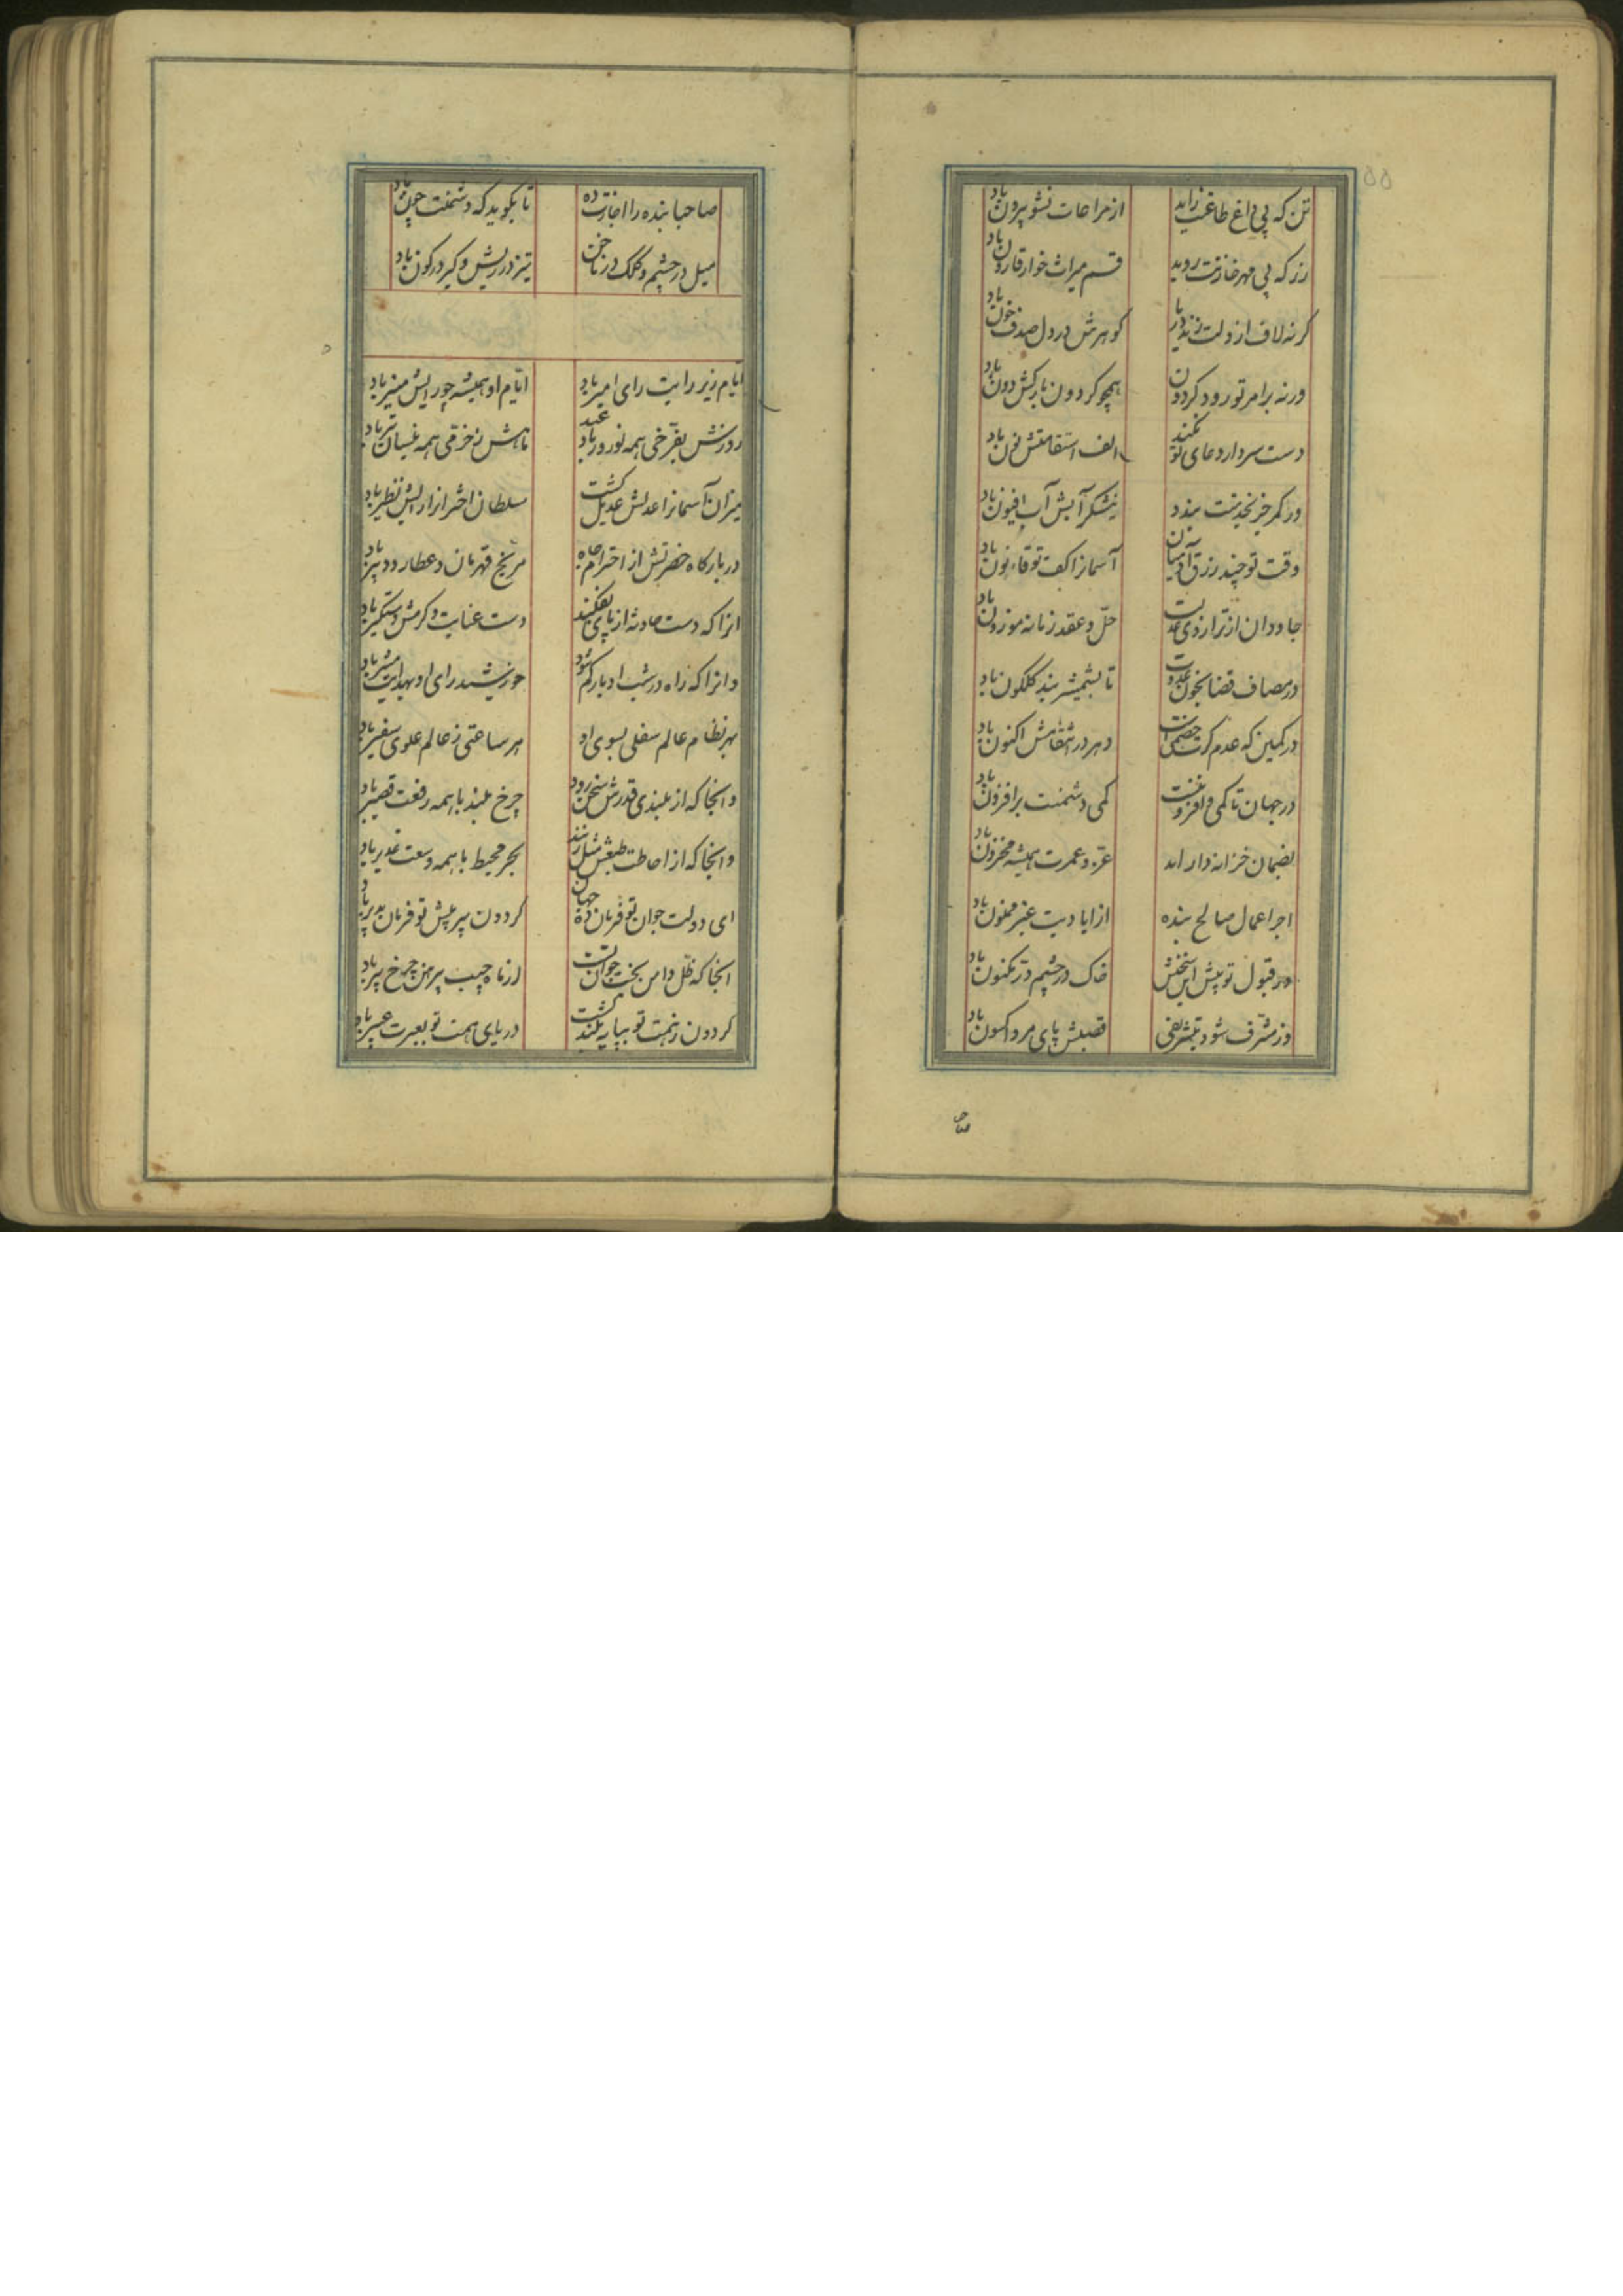 ۵۵
تن که بی داغ طاعتت زاید از مراعات نشو بیرون باد
زر که بی مهر خازنت روید قسم میراث خوار قارون باد
کر نه لاف از دلت زند دریا کوهرش در دل صدف خون باد
ورنه بر امر تو رود کردون همچو کردون بارکش دون باد
دست سرو ار دعای تو نکند الف استقامتش نون باد
ور کمر جز بخدمتت بندد نیشکر آبش آب افیون باد
وقت توجیه رزق آدمیان آسمانرا کف تو قانون باد
جاودان از ترازوی عدلت حل و عقد زمانه موزون باد
در مصاف قضا بخون عدوت تا بشمشیر بید کلکون باد
در کمین که عدم کرت خصمیست دهر در انتقامش اکنون باد
در جهان تا کمی و افزونیست کمی دشمنت بر افزون باد
بضمان خزانه دار ابد عز و عمرت همیشه مخزون باد
اجر اعمال صالح بنده از ایادیت غیر ممنون باد
در قبول تو پیش این سخنش خاک در چشم در مکنون باد
وز مشرف شود بتشریفی قصبش پای مرد اکسون باد
صاحبا
صاحبا بنده را اجازت ده تا بکوید که دشمنت چون باد
میل در چشم و کلک در ناخن تیز در ریش و کیر در کون باد
ایام زیر رایت رای امیر باد ایام او همیشه چو رایش منیر باد
روزش بفرخی همه نوروز عید باد ماهش ز خرمی همه نیسان و تیر باد
میزان آسمانرا عدلش عدیل کشت سلطان اختران را رایش نظیر باد
در بارکاه حضرتش از احترام جاه مریخ قهرمان و عطارد دبیر باد
انرا که دست حادثه از پای بفکند دست عنایت و کرمش دستکیر باد
وانرا که راه در شب ادبار کم شود خورشید رای او بهدایت مشیر باد
بهر نظام عالم سفلی بسوی او هر ساعتی ز عالم علوی سفیر باد
وانجا که از بلندی قدرش سخن رود چرخ بلند با همه رفعت قصیر باد
وانجا که از احاطت طبعش مثل زنند بحر محیط با همه وسعت غدیر باد
ای دولت جوان تو فرمان ده جهان کردون پیر پیش تو فرمان پذیر باد
انجا که ظل دامن بخت جوان تست ارزناه جیب پیرهن چرخ پیر باد
کردون زنهمت تو بپایه بلند کشت دریای همت تو بعبرت عسیر باد